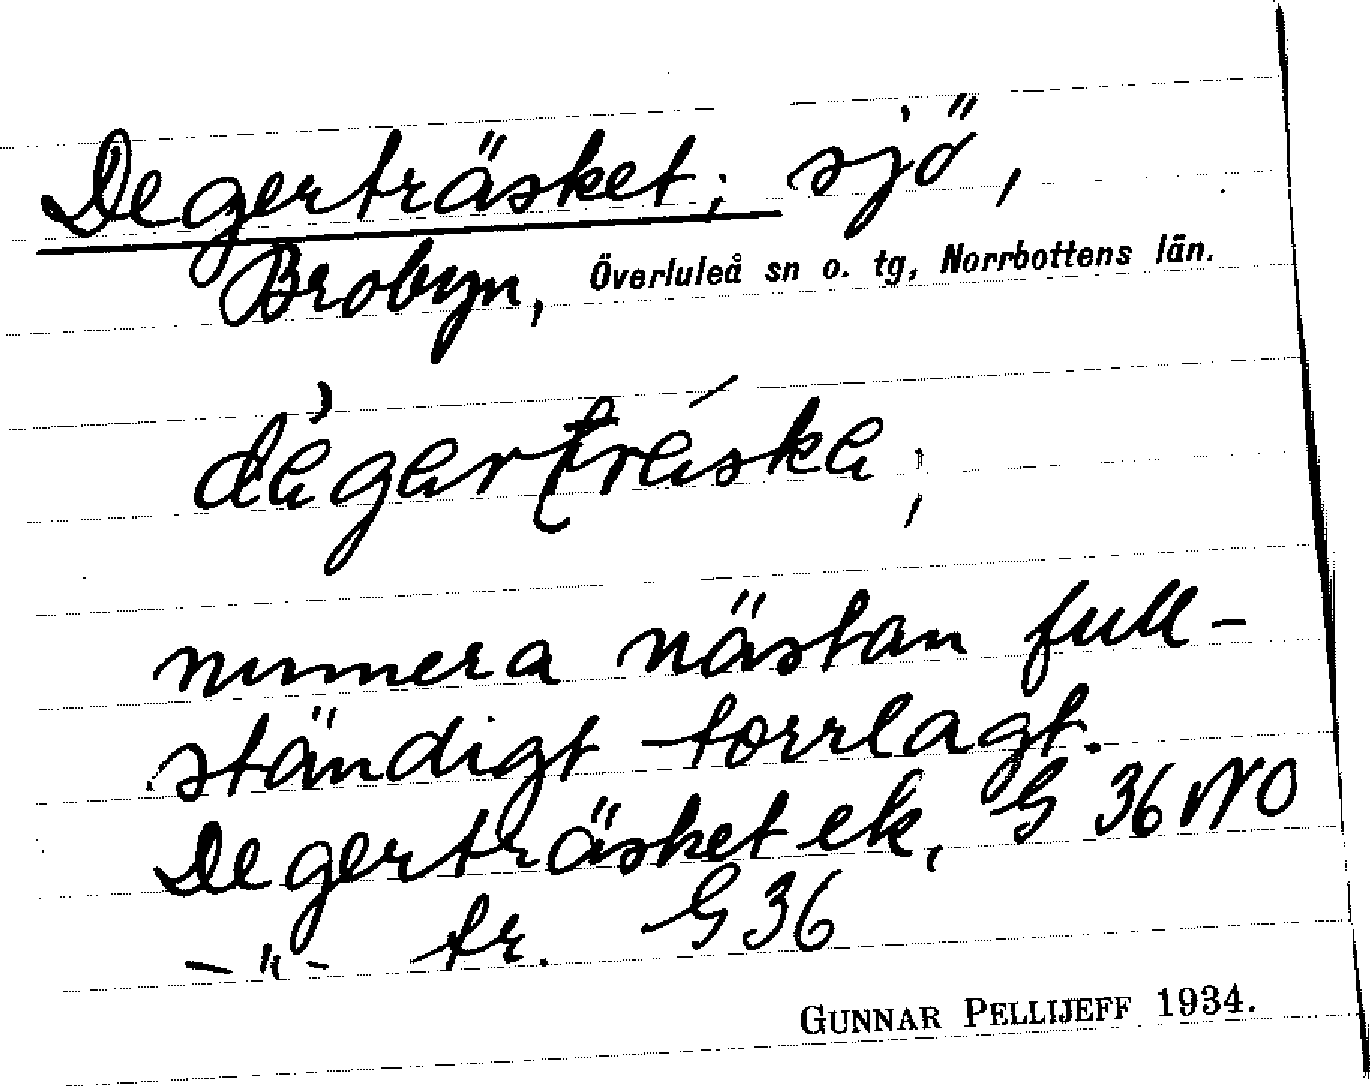 Degerträsket; sjö,
Brobyn, Överluleå sn o. tg, Norrbottens län.
numera nästan full-
ständigt torrlagt.
Degerträsket ek, G 36 NO
-"- tr. G 36
GUNNAR PELLIJEFF 1934.